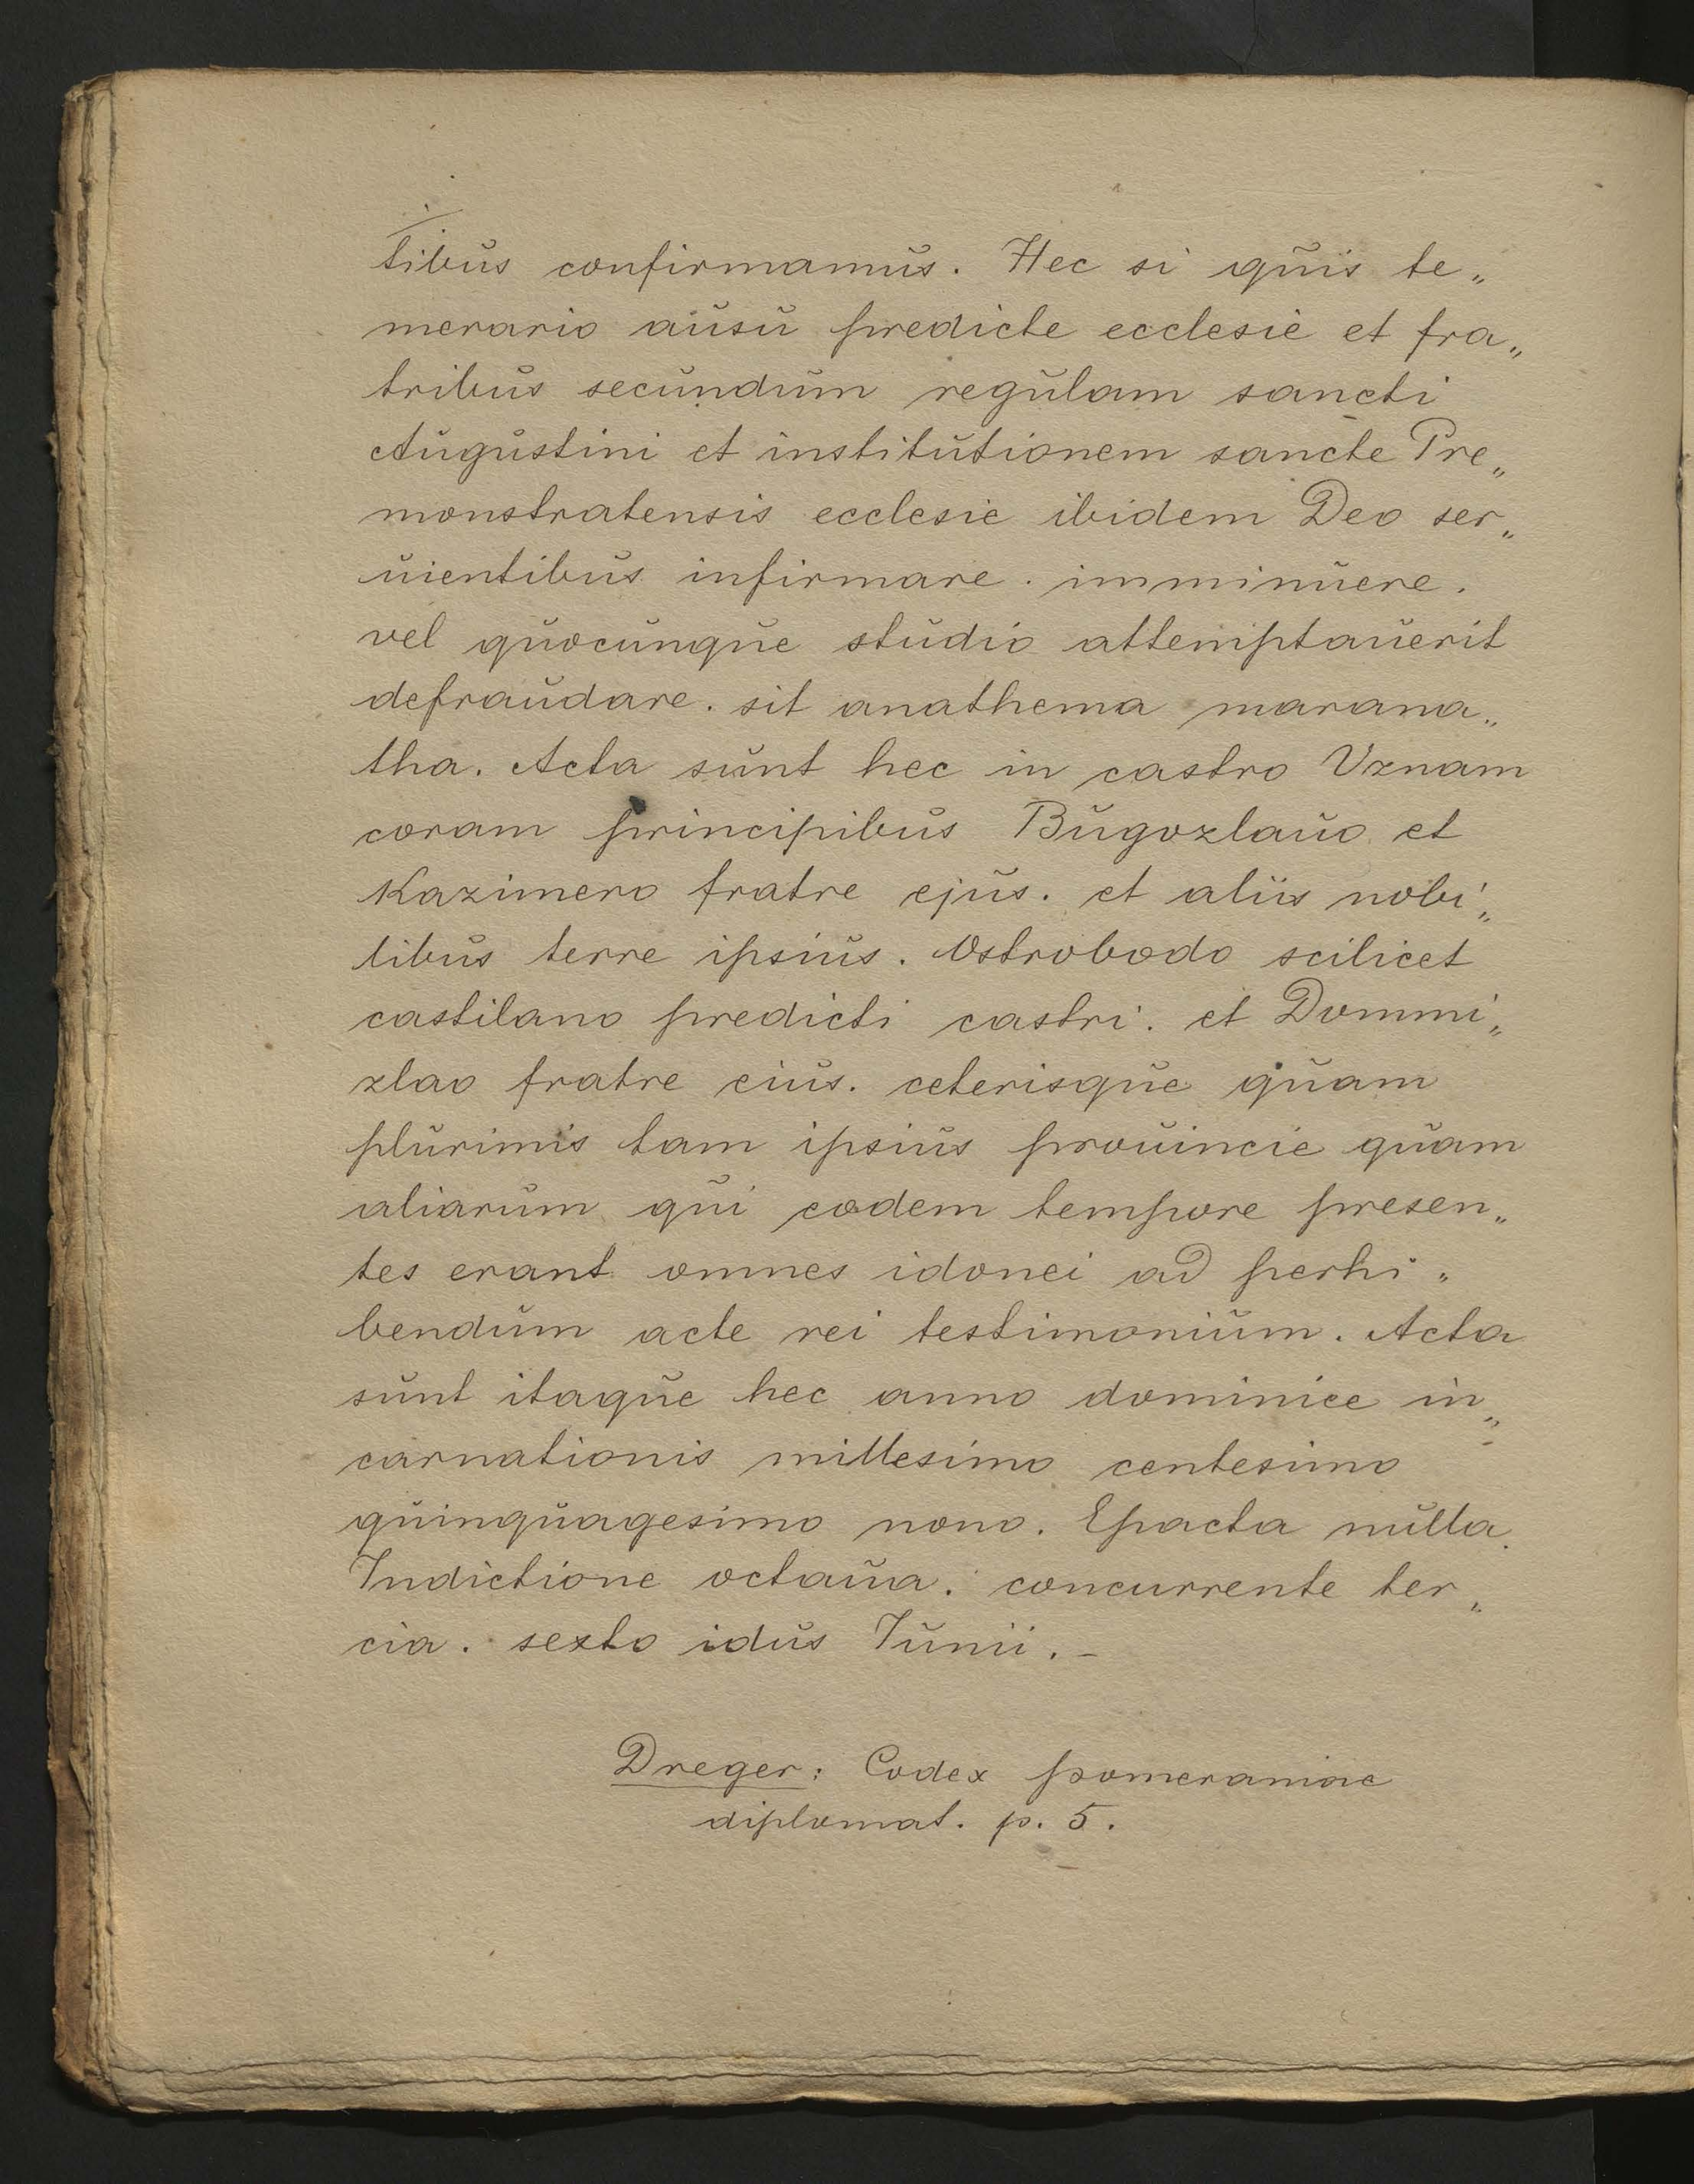 tibus confirmamus. Hec si quis te„
merario ausu predicte ecclesie et fra„
tribus secundum regulam sancti
Augustini et institutionem sancte Pre„
monstratensis ecclesie ibidem Deo ser„
uientibus infirmare. imminuere.
vel quocunque studio attemptauerit
defraudare. sit anathema marana„
tha. Acta sunt hec in castro Uznam
coram principibus Bugozlauo et
Kazimero fratre ejus. et aliis nobi„
libus terre ipsius. Ostrobodo scilicet
castilano predicti castri. et Dommi„
zlao fratre eius. ceterisque quam
plurimis tam ipsius prouincie quam
aliarum qui eodem tempore presen„
tes erant omnes idonei ad perhi„
bendum acte rei testimonium. Acta
sunt itaque hec anno dominice in„
carnationis millesimo centesimo
quinquagesimo nono. Epacta nulla.
Indictione octaua. concurrente ter„
cia. sexto idus Junii.-
Dreger: Codex pomeraniae
diplomat. p. 5.